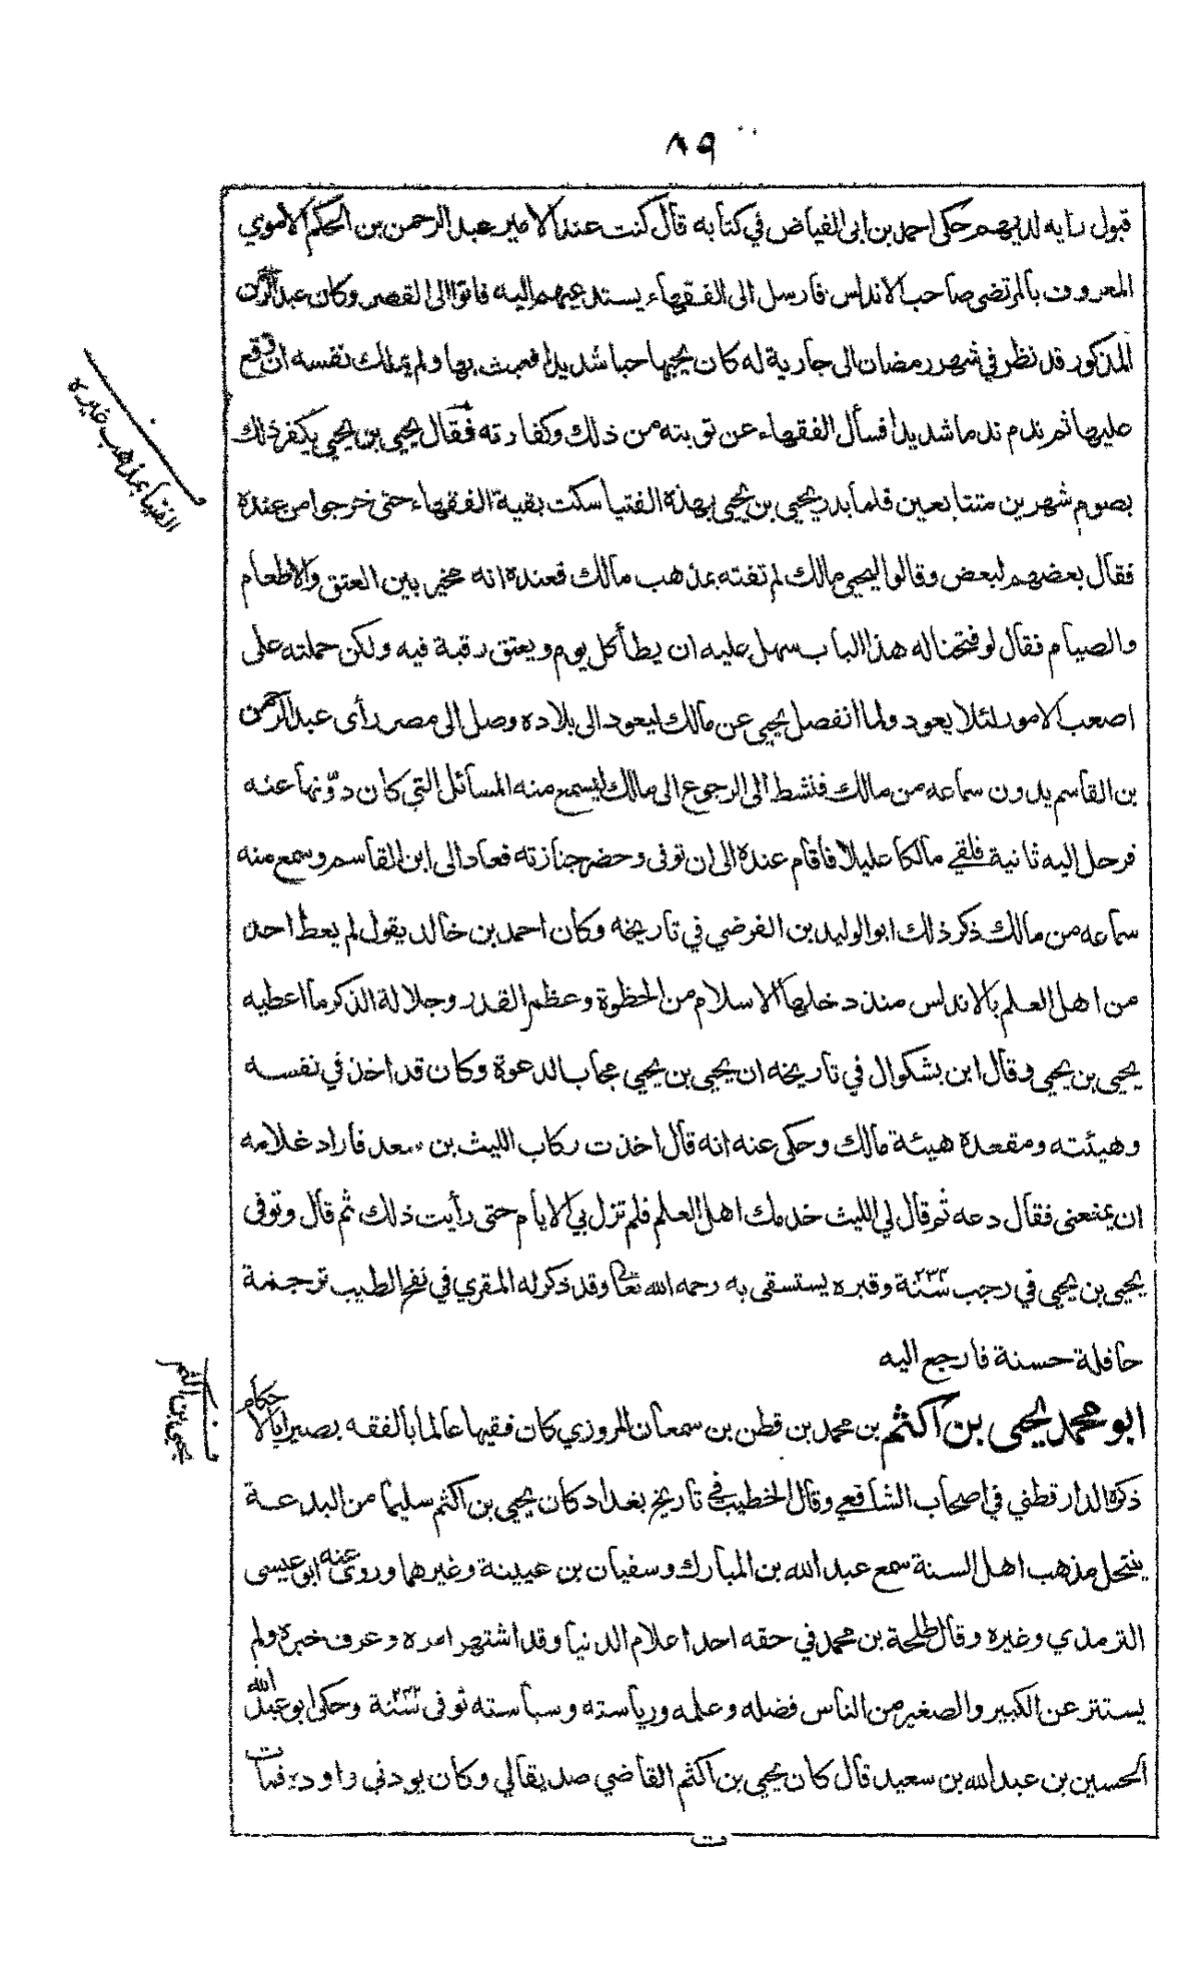 ٨٩
قبول رايه لديهم حكى احمد بن ابى الفياض في كتابه قال كنت عند الامير عبد الرحمن بن الحكم الاموي
المعروف بالمرتضى صاحب الاندلس فارسل الى الفقهاء يستدعيهم اليه فاتوا الى القصر وكان عبد الرحمن
المذكور قد نظر في شهر رمضان الى جارية له كان يحبها حبا شديدا فعبث بها ولم يملك نفسه ان وقع
عليها ثم ندم ندما شديدا فسأل الفقهاء عن توبته من ذلك وكفارته فقال يحيى بن يحيى يكفر ذلك
بصوم شهرين متتابعين فلما بدر يحيى بن يحيى بهذه الفتيا سكت بقية الفقهاء حتى خرجوا من عنده
فقال بعضهم لبعض وقالوا ليحيى مالك لم تفته بمذهب مالك فعنده انه مخير بين العتق والاطعام
والصيام فقال لو فتحنا له هذا الباب سهل عليه ان يطأ كل يوم ويعتق رقبة فيه ولكن حملته على
اصعب الامور لئلا يعود ولما انفصل يحيى عن مالك ليعود الى بلاده وصل الى مصر رأى عبد الرحمن
بن القاسم يدون سماعه من مالك فنشط الى الرجوع الى مالك ليسمع منه المسائل التي كان دوّنها عنه
فرحل اليه ثانية فلقي مالكا عليلا فاقام عنده الى ان توفى وحضر جنازته فعاد الى ابن القاسم وسمع منه
سماعه من مالك ذكر ذلك ابو الوليد بن الفرضي في تاريخه وكان احمد بن خالد يقول لم يعط احد
من اهل العلم بالاندلس منذ دخلها الاسلام من الحظوة وعظم القدر وجلالة الذكر ما اعطيه
يحيى بن يحيى وقال ابن بشكوال في تاريخه ان يحيى بن يحيى مجاب الدعوة وكان قد اخذ في نفسه
وهيئته ومقعده هيئة مالك وحكى عنه انه قال اخذت ركاب الليث بن سعد فاراد غلامه
ان يمنعنى فقال دعه ثم قال لي الليث خدمك اهل العلم فلم تزل بي الايام حتى رأيت ذلك ثم قال وتوفى
يحيى بن يحيى في رجب سنة ٢٣٤ وقبره يستسقى به رحمه الله تعالى وقد ذكر له المقري في نفح الطيب ترجمة
حافلة حسنة فارجع اليه
ابو محمد يحيى بن اكثم بن محمد بن قطن بن سمعان المروزي كان فقيها عالما بالفقه بصيرا بالاحكام
ذكره الدارقطني في اصحاب الشافعي وقال الخطيب في تاريخ بغداد كان يحيى بن اكثم سليما من البدعة
ينتحل مذهب اهل السنة سمع عبد الله بن المبارك وسفيان بن عيينة وغيرهما وروى عنه ابو عيسى
الترمذي وغيره وقال طلحة بن محمد في حقه احد اعلام الدنيا وقد اشتهر امره وعرف خبره ولم
يستتر عن الكبير والصغير من الناس فضله وعلمه ورياسته وسياسته توفى سنة وحكى ابو عبد الله
الحسين بن عبد الله بن سعيد قال كان يحيى بن اكثم القاضي صديقا لي وكان يودني واوده فمات
الفتيا بمذهب غيره
يحيى بن اكثم